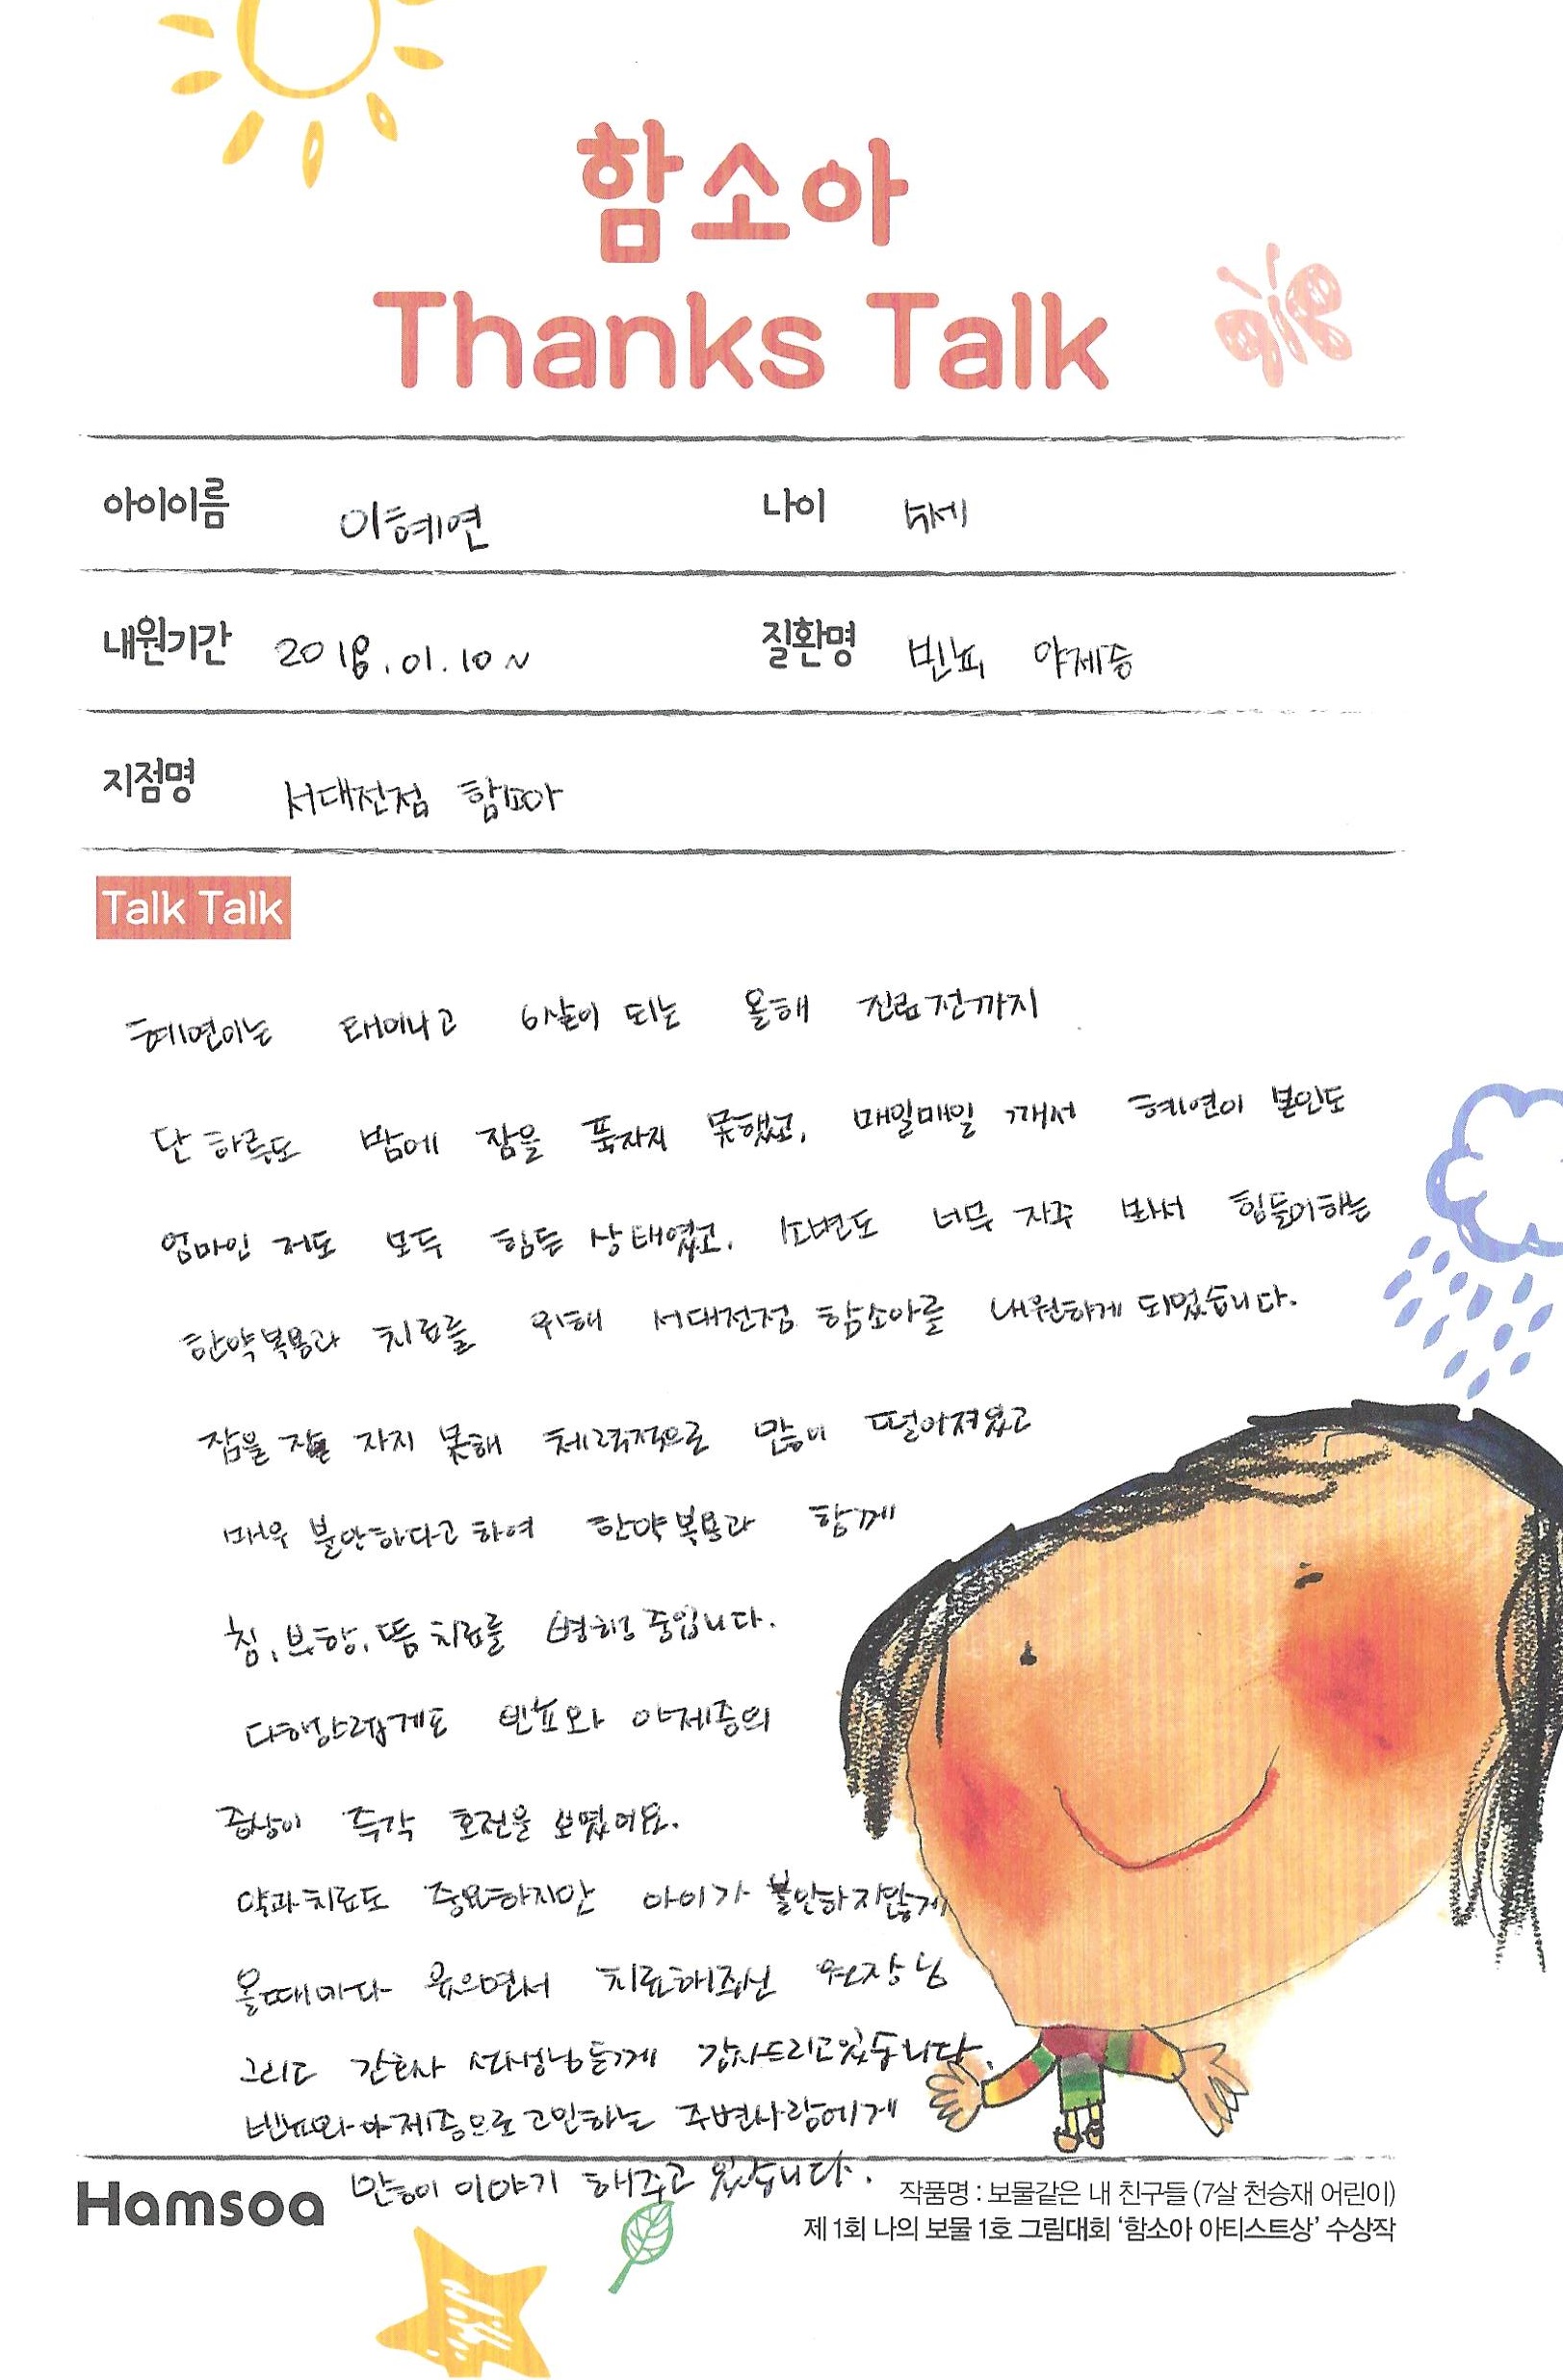 함소아
Thanks Talk
아이이름 이혜연 나이 5세
내원기간 2018.01.10~ 질환명 빈뇨, 야제증
지점명 서대전점 함소아
Talk Talk
혜연이는 태어나고 6살이 되는 올해 진료전까지
단 하루도 밤에 잠을 푹자지 못했고, 매일매일 깨서 혜연이 본인도
엄마인 저도 모두 힘든 상태였고, 소변도 너무 자주 봐서 힘들어하는
한약복용과 치료를 위해 서대전점 함소아를 내원하게 되었습니다.
잠을 잘 자지 못해 체력적으로 많이 떨어져있고
매우 불안하다고 하여 한약복용과 함께
침, 부항, 뜸 치료를 병행중입니다.
다행스럽게도 빈뇨와 야제증의
증상이 즉각 호전을 보였어요.
약과 치료도 중요하지만 아이가 불안하지않게
올때마다 웃으면서 치료해주신 원장님
그리고 간호사 선생님들께 감사드리고있습니다.
빈뇨와 야제증으로 고민하는 주변사람에게
많이 이야기 해주고 있습니다.
Hamsoa
작품명 : 보물같은 내 친구들 (7살 천승재 어린이)
제 1회 나의 보물 1호 그림대회 ‘함소아 아티스트상’ 수상작